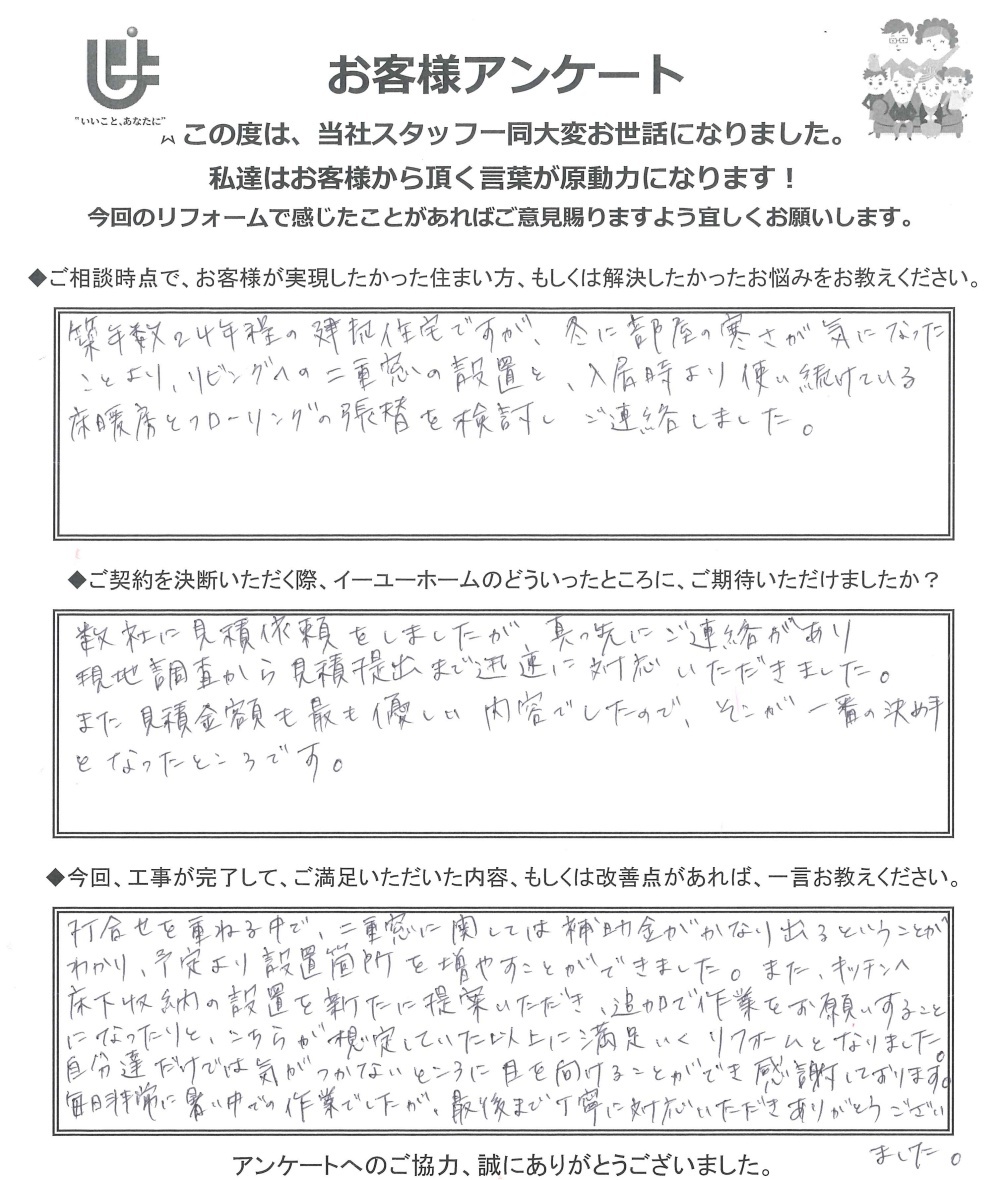 お客様アンケート
"いいこと、あなたに"
この度は、当社スタッフ一同大変お世話になりました。
私達はお客様から頂く言葉が原動力になります！
今回のリフォームで感じたことがあればご意見賜りますよう宜しくお願いします。
◆ご相談時点で、お客様が実現したかった住まい方、もしくは解決したかったお悩みをお教えください。
築年数24年程の建売住宅ですが、冬に部屋の寒さが気になった
ことより、リビングへの二重窓の設置と、入居時より使い続けている
床暖房とフローリングの張替を検討し ご連絡しました。
◆ご契約を決断いただく際、イーユーホームのどういったところに、ご期待いただけましたか？
数社に見積依頼をしましたが 真っ先にご連絡があり
現地調査から見積提出まで迅速に対応いただきました。
また見積金額も最も優しい内容でしたので、そこが一番の決め手
となったところです。
◆今回、工事が完了して、ご満足いただいた内容、もしくは改善点があれば、一言お教えください。
打合せを重ねる中で、二重窓に関しては補助金がかなり出るということが
わかり、予定より設置箇所を増やすことができました。また、キッチンへ
床下収納の設置を新たに提案いただき、追加で作業をお願いすること
になったりと、こちらが想定していた以上に満足いくリフォームとなりました。
自分達だけでは気がつかないところに目を向けることができ感謝しております。
毎日非常に暑い中での作業でしたが、最後まで丁寧に対応いただきありがとうござい
ました。
アンケートへのご協力、誠にありがとうございました。